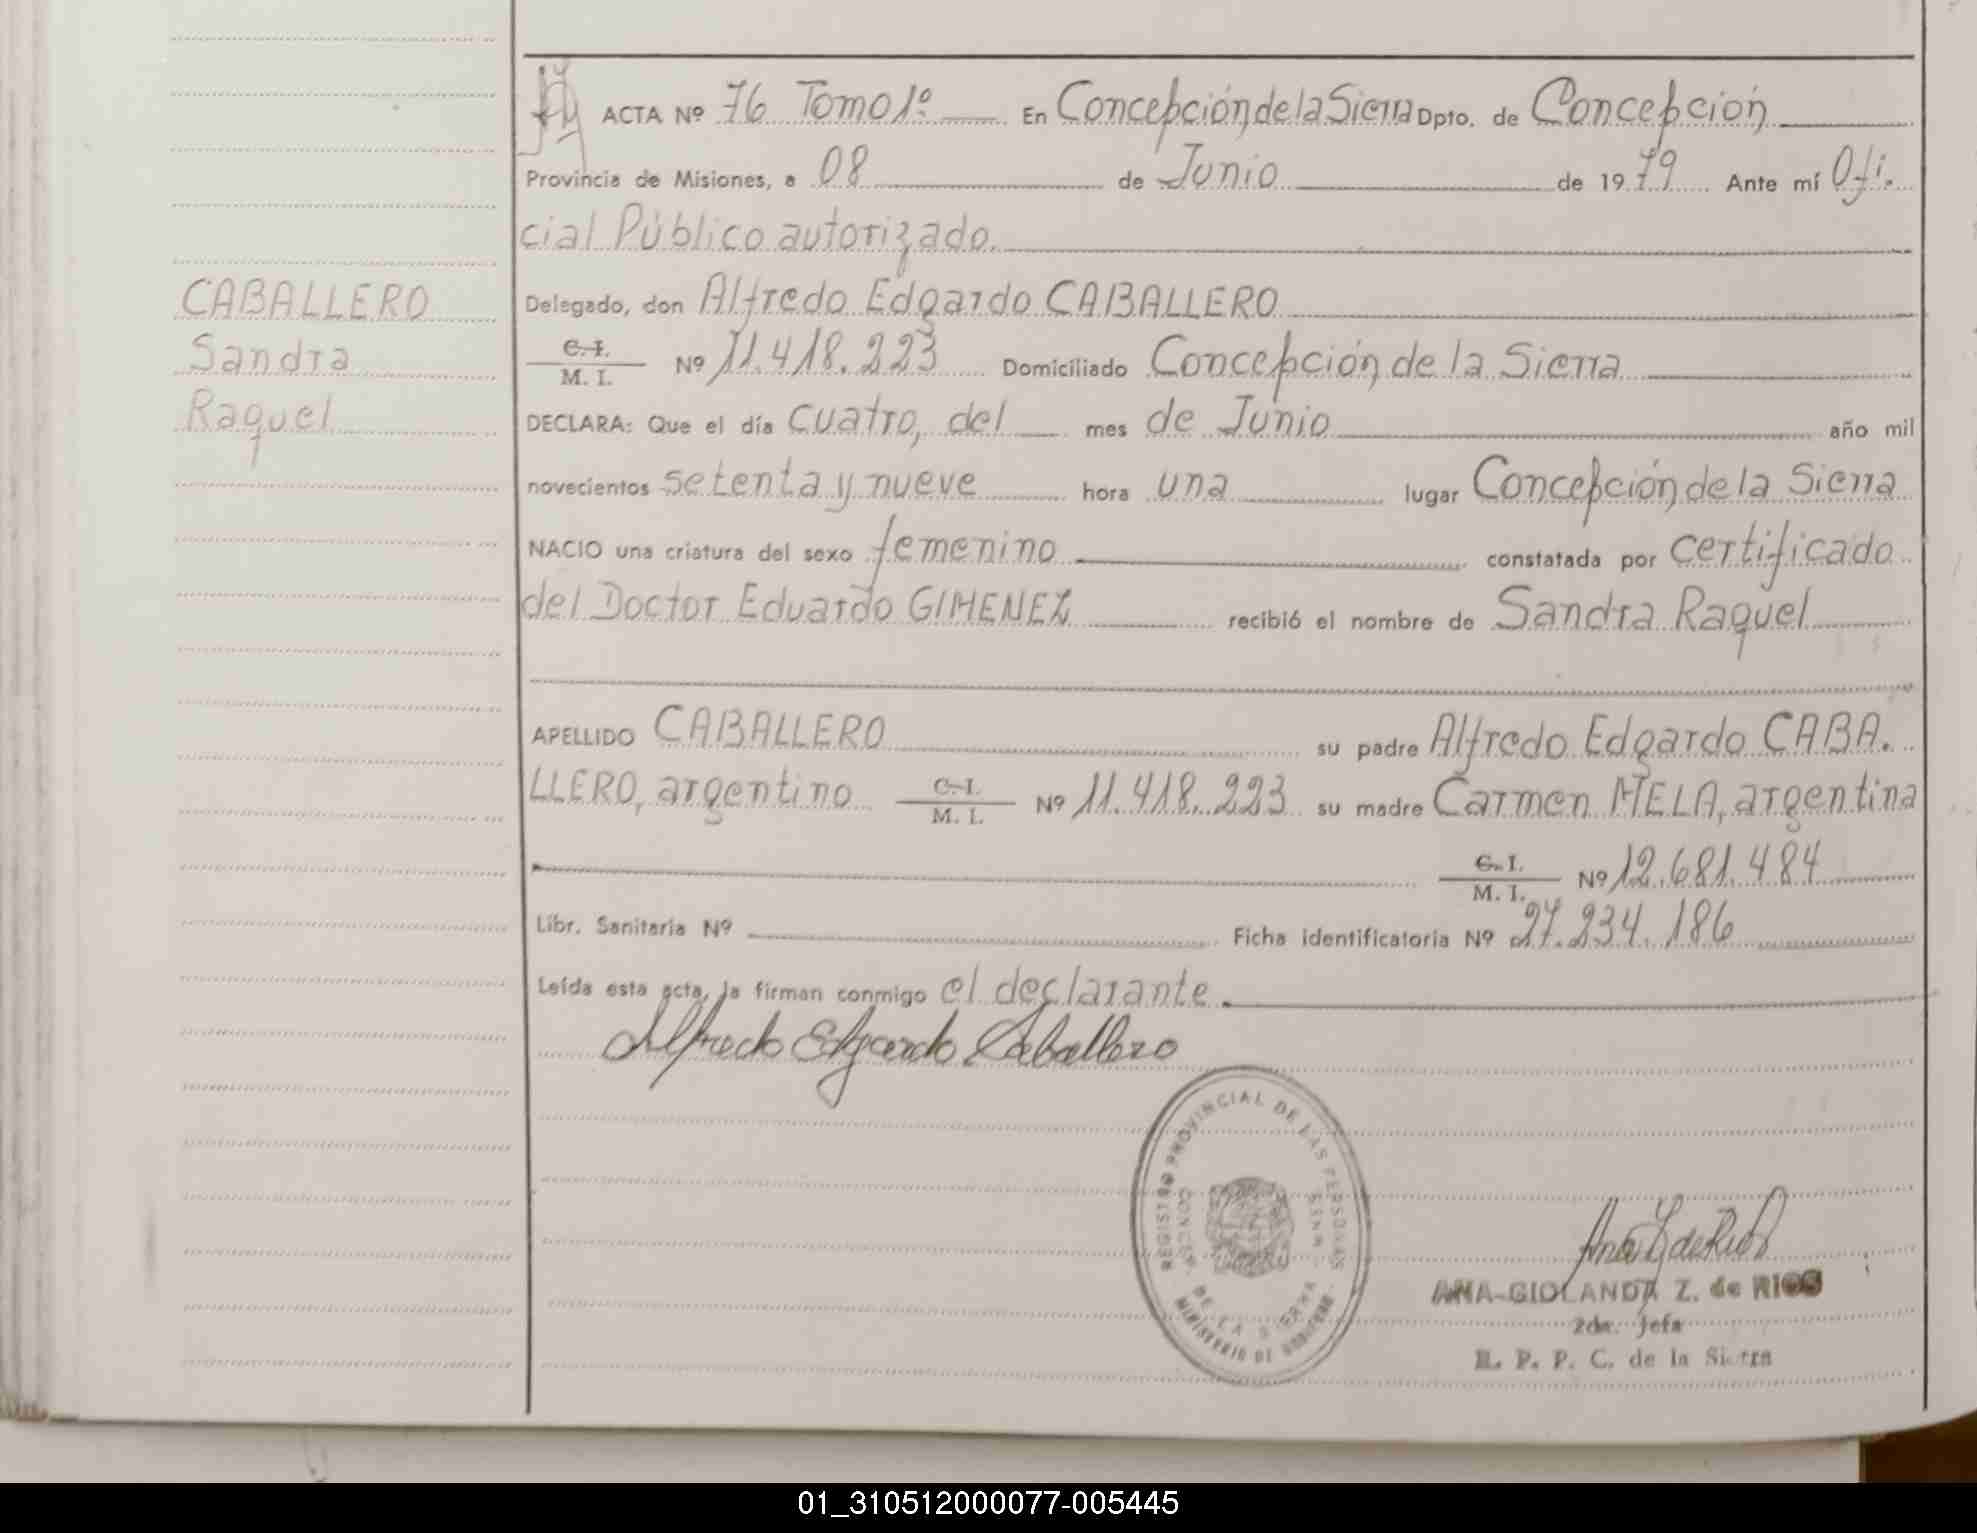 ACTA Nº 76 Tomo 1º En Concepción de la Sierra Dpto. de Concepción
Provincia de Misiones, a 08 de Junio de 1979 Ante mí Ofi.
cial Público autorizado.
CABALLERO
Sandra
Raquel
Delegado, don Alfredo Edgardo CABALLERO
C. I.
M. I. Nº 11.418.223 Domiciliado Concepción de la Sierra
DECLARA: Que el día cuatro, del mes de Junio año mil
novecientos setenta y nueve hora una lugar Concepción de la Sierra
NACIO una criatura del sexo femenino constatada por certificado
del Doctor Eduardo GIMENEZ recibió el nombre de Sandra Raquel
APELLIDO CABALLERO su padre Alfredo Edgardo CABA.
LLERO, argentino C. I. M. I. Nº 11.418.223 su madre Carmen MELA, argentina
C. I.
M. I. Nº 12.681.484
Libr. Sanitaria Nº Ficha identificatoria Nº 27.234.186
Leída esta acta, la firman conmigo el declarante.
Alfredo Edgardo Caballero
REGISTRO PROVINCIAL DE LAS PERSONAS
CONCEP. DE LA SIERRA
MINISTERIO DE GOBIERNO
Ana G de Rios
ANA GIOLANDA Z. de RIOS
2da. Jefa
R. P. P. C. de la Sierra
01_310512000077-005445